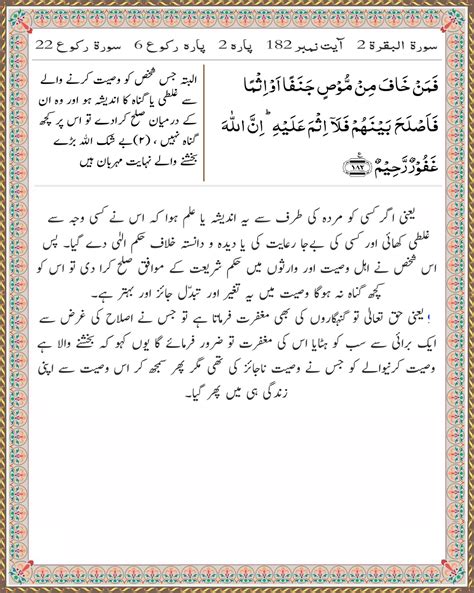 سورة البقرة 2 آیت نمبر 182 پارہ 2 پارہ رکوع 6 سورة رکوع 22
فَمَنْ خَافَ مِنْ مُّوْصٍ جَنَفًا اَوْ اِثْمًا
فَاَصْلَحَ بَيْنَهُمْ فَلَاۤ اِثْمَ عَلَيْهِ ؕ اِنَّ اللّٰهَ
غَفُوْرٌ رَّحِيْمٌ ﴿۱۸۲﴾
البتہ جس شخص کو وصیت کرنے والے
سے غلطی یا گناہ کا اندیشہ ہو اور وہ ان
کے درمیان صلح کرادے تو اس پر کچھ
گناہ نہیں ، (۲) بے شک اللہ بڑے
بخشنے والے نہایت مہربان ہیں
یعنی اگر کسی کو مردہ کی طرف سے یہ اندیشہ یا علم ہوا کہ اس نے کسی وجہ سے
غلطی کھائی اور کسی کی بےجا رعایت کی یا دیدہ و دانستہ خلاف حکم الٰہی دے گیا۔ پس
اس شخص نے اہل وصیت اور وارثوں میں حکم شریعت کے موافق صلح کرا دی تو اس کو
کچھ گناہ نہ ہوگا وصیت میں یہ تغیر اور تبدّل جائز اور بہتر ہے۔
! یعنی حق تعالیٰ تو گنہگاروں کی بھی مغفرت فرماتا ہے تو جس نے اصلاح کی غرض سے
ایک برائی سے سب کو ہٹایا اس کی مغفرت تو ضرور فرمائے گا یوں کہو کہ بخشنے والا ہے
وصیت کرنیوالے کو جس نے وصیت ناجائز کی تھی مگر پھر سمجھ کر اس وصیت سے اپنی
زندگی ہی میں پھر گیا۔